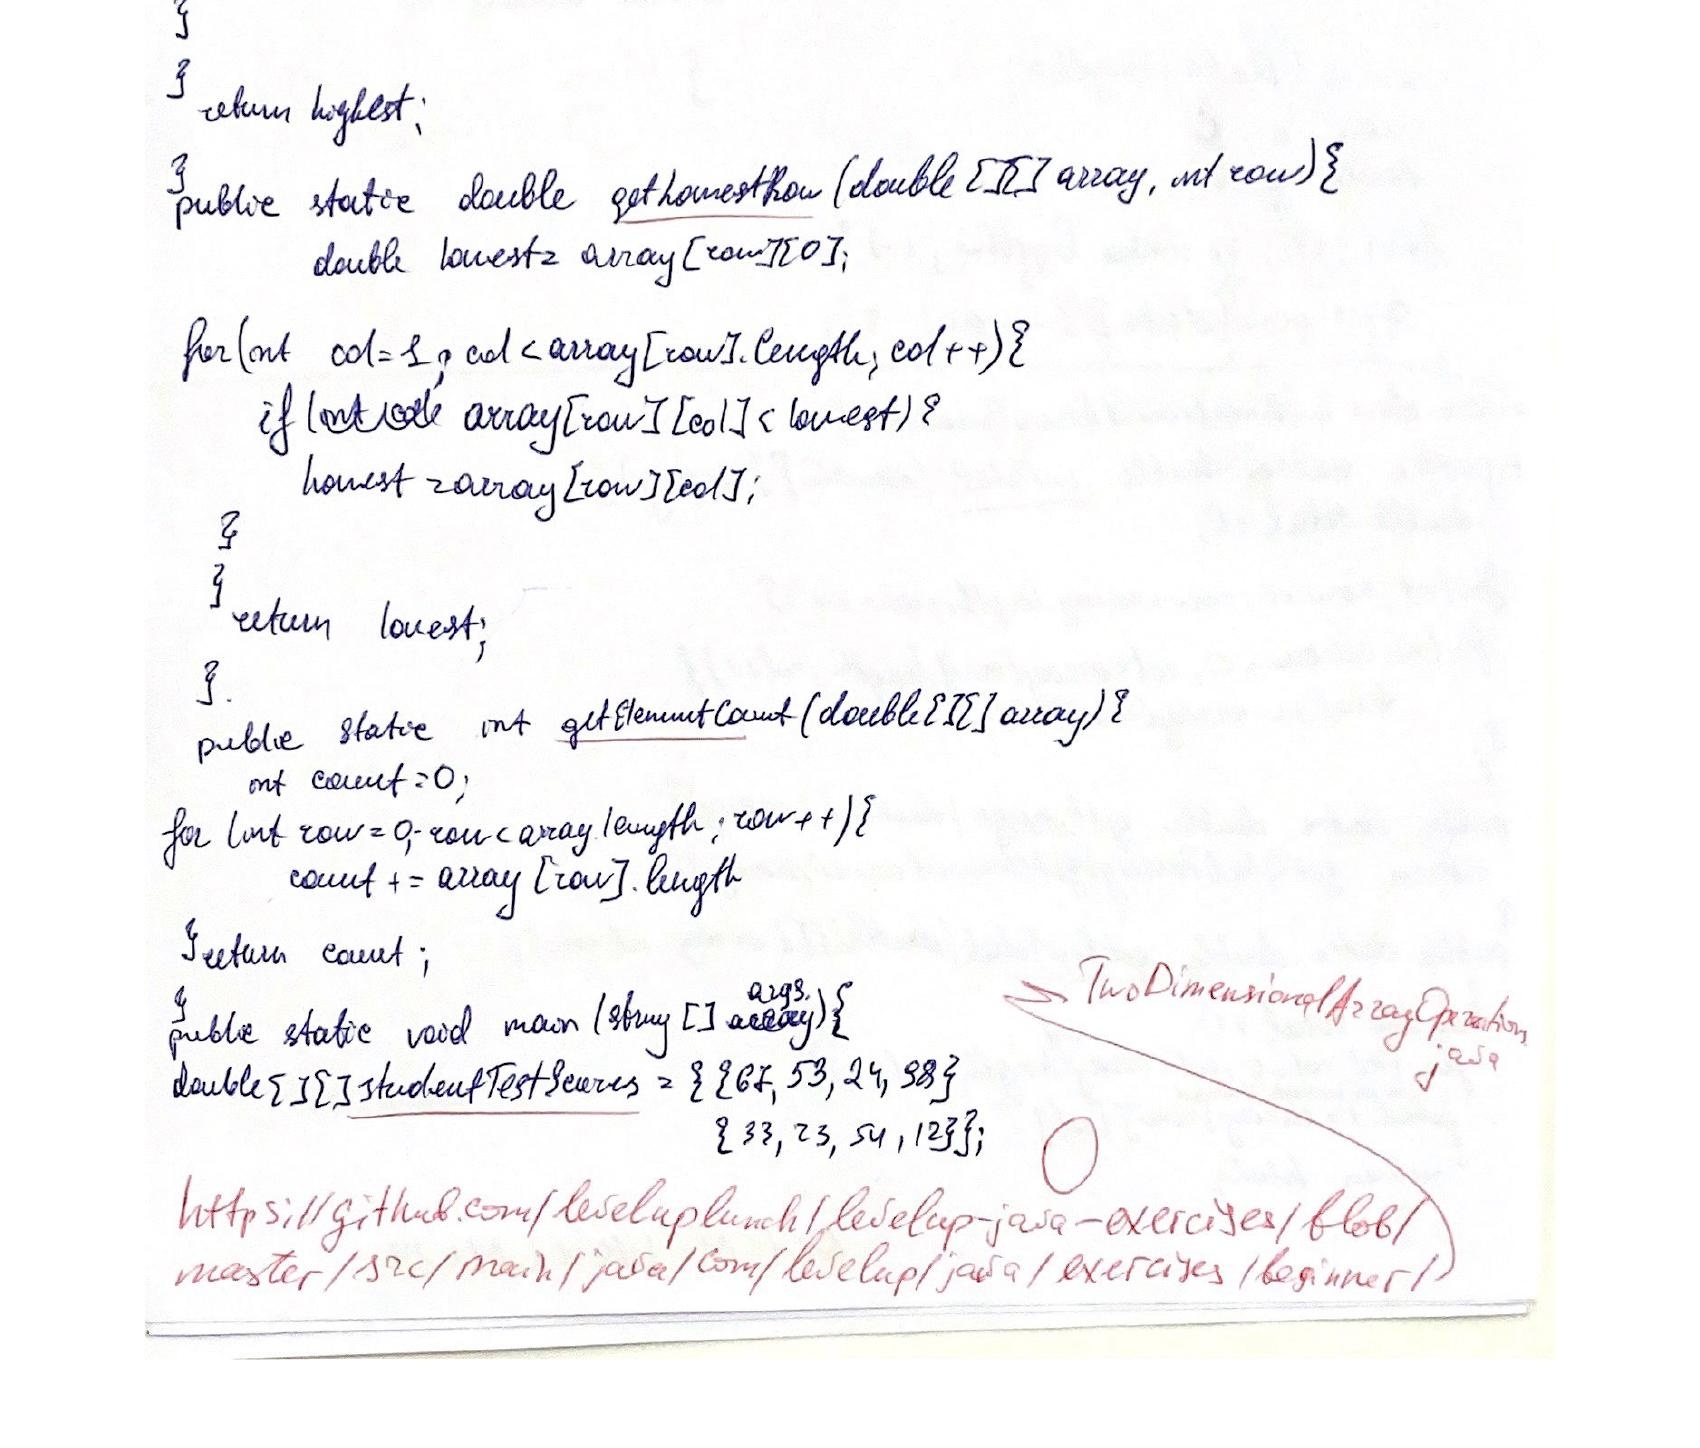 }
}
return highest;
}
public static double getLowestRow (double[][] array, int row){
double lowest= array[row][0];
for(int col=1; col<array[row].length; col++){
if (int code array[row][col]< lowest){
lowest =array[row][col];
}
}
return lowest;
}.
public static int getElementCount(double[][] array){
int count=0;
for (int row=0; row<array.length; row++){
count += array[row].length
}return count;
}
args.
public static void main (string [] array){
double[][] studentTestScores = {{67, 53, 24, 98}
{33, 23, 54, 12}};
TwoDimensionalArrayOperations
java
https://github.com/leveluplunch/levelup-java-exercises/blob/
master/src/main/java/com/levelup/java/exercises/beginner/